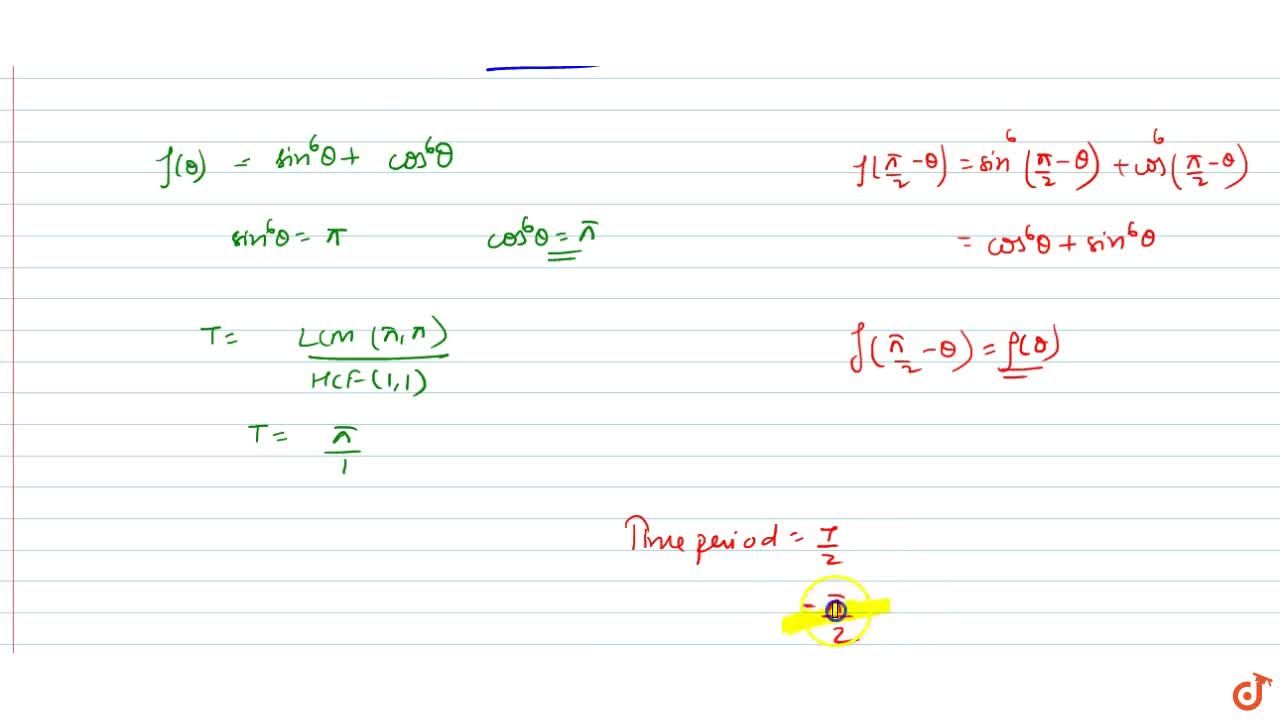 f(θ) = sin⁶θ + cos⁶θ
sin⁶θ = π cos⁶θ = π
T = LCM (π, π) / HCF (1,1)
T = π/1
f(π/2 - θ) = sin⁶(π/2 - θ) + cos⁶(π/2 - θ)
= cos⁶θ + sin⁶θ
f(π/2 - θ) = f(θ)
Time period = T/2
= π/2